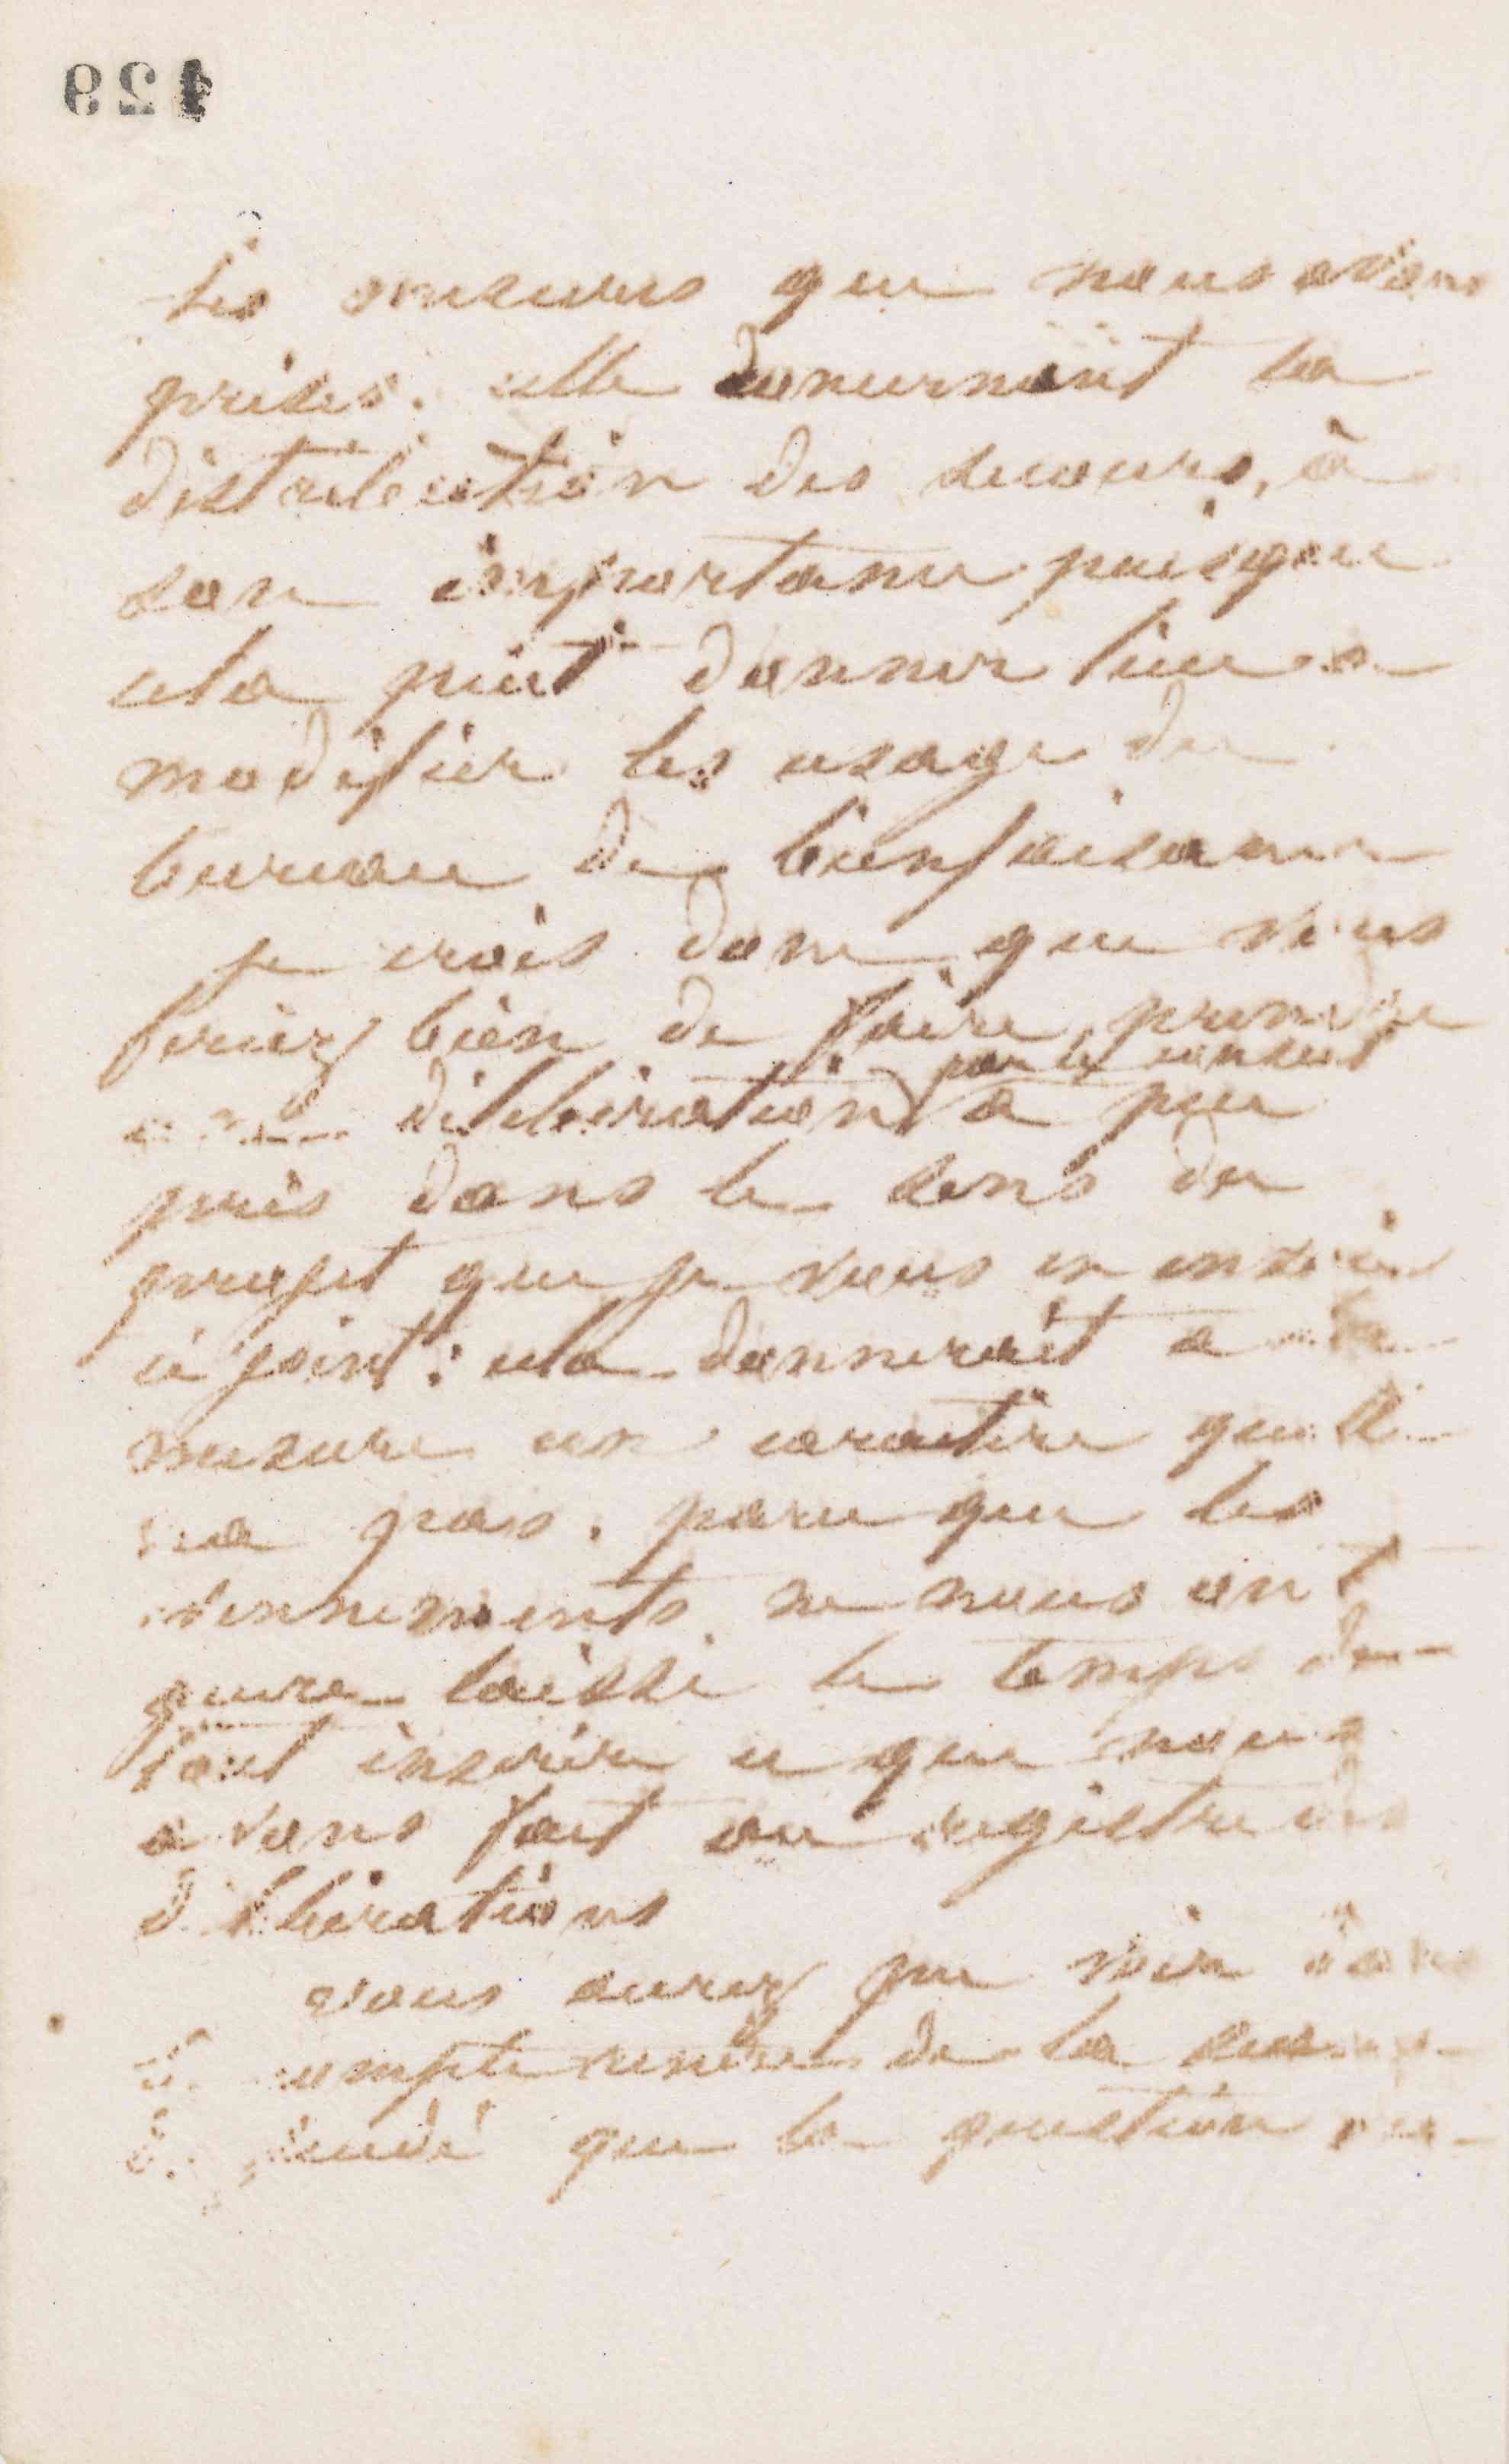 429
les mesures que nous avons
prises. celle concernant la
distribution des secours, à
son importance puisque
cela peut donner lieu a
modifier les usage du
bureau de bienfaisance
je crois donc que vous
feriez bien de faire prendre
une déliberation par le conseil a peu
près dans le sens du
projet que je vous en envoie
ci joint : cela donnerait a la
mesure un caractère quelle
n'a pas. parce que les
évennements ne nous ont
guere laissé le temps de
tout inscrire ce que nous
avons fait au registre des
déliberations
vous aurez pu voir dans
le compte rendu de la
de jeudi que la question